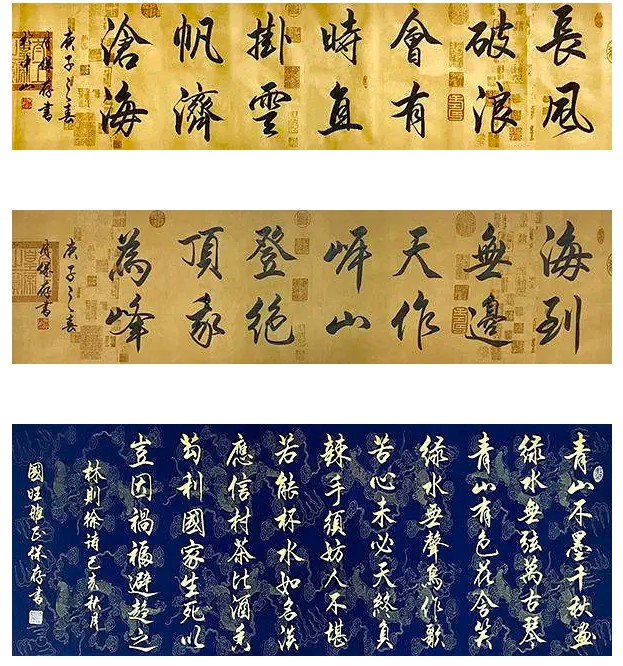 長風
破浪
會有
時直
掛雲
帆濟
滄海
庚子之春
保存書
海到
無邊
天作
岸山
登絕
頂我
為峰
庚子之春
保存書
青山不墨千秋畫
綠水無弦萬古琴
青山有色花含笑
綠水無聲鳥作歌
苦心未必天終負
辣手須妨人不堪
若能杯水如名淡
應信村茶比酒香
苟利國家生死以
豈因禍福避趨之
林則徐詩己亥秋月
國旺雅正保存書